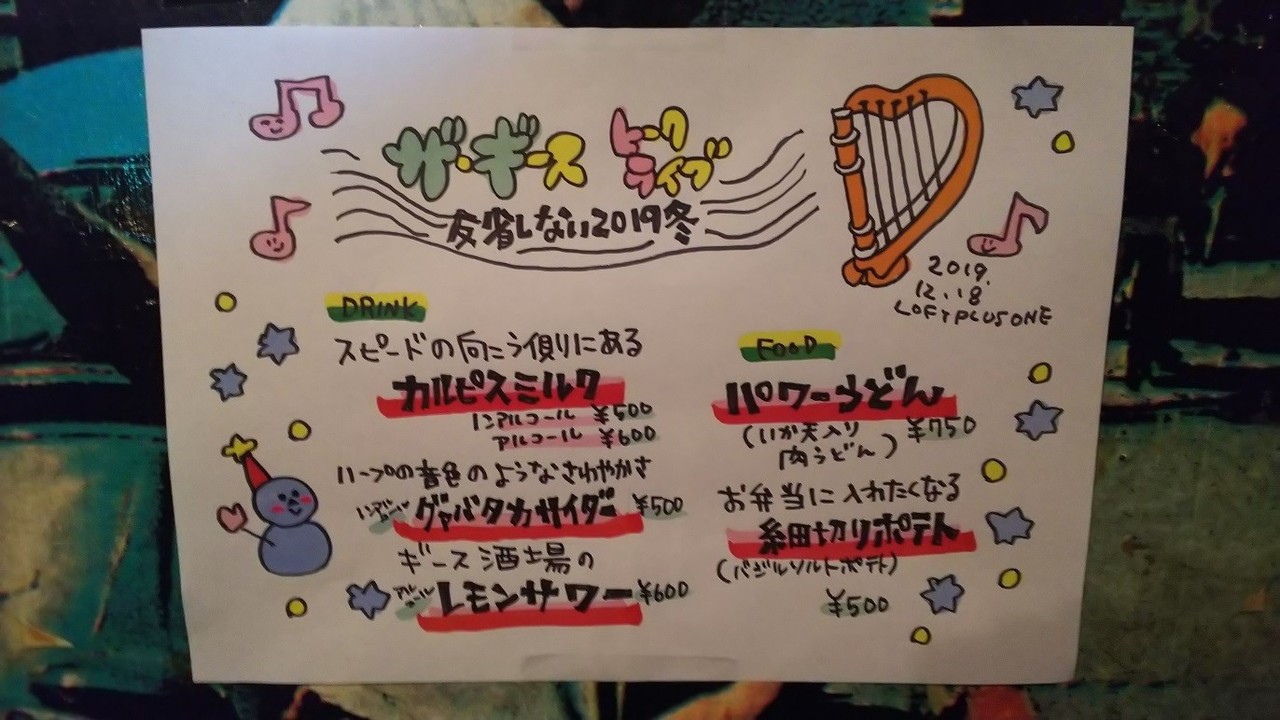 ザ・ギース トークライブ
反省しない2019冬
2019.
12.18
LOFTPLUSONE
DRINK
スピードの向こう側りにある
カルピスミルク
ノンアルコール ¥500
アルコール ¥600
ハープの音色のようなさわやかさ
ノンアルコール グァバタカサイダー ¥500
ギース酒場の
アルコール レモンサワー ¥600
FOOD
パワーうどん
(いか天入り 肉うどん) ¥750
お弁当に入れたくなる
細切りポテト
(バジルソルトポテト)
¥500